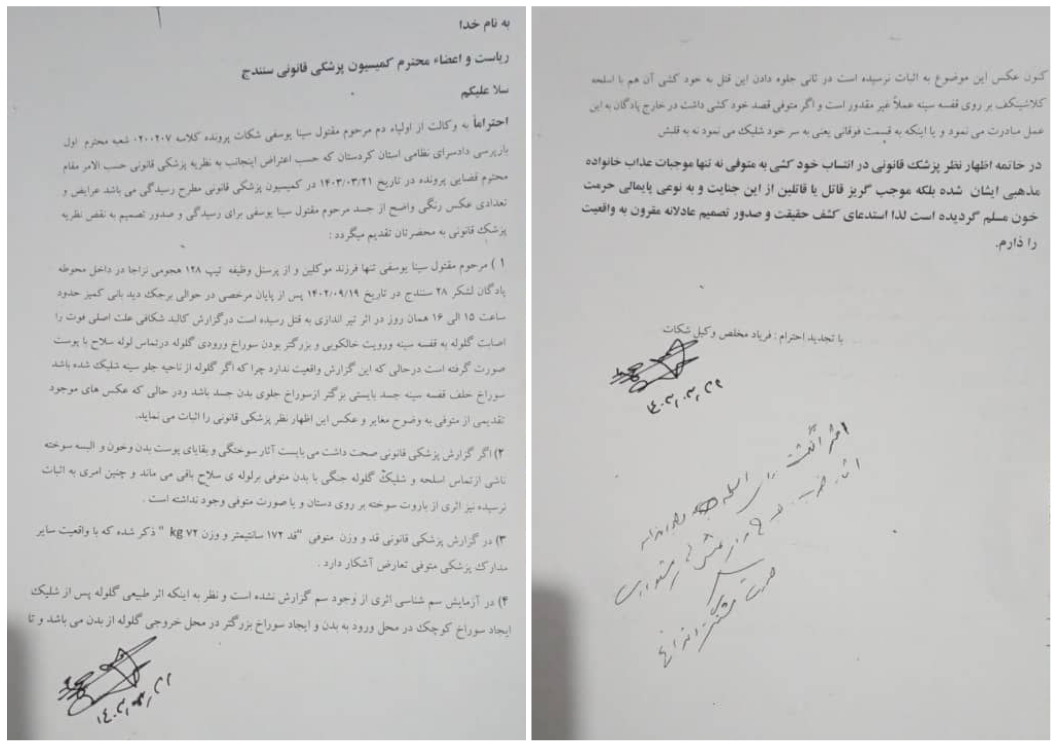 به نام خدا
ریاست و اعضاء محترم کمیسیون پزشکی قانونی سنندج
سلا علیکم
احتراماً به وکالت از اولیاء دم مرحوم مقتول سینا یوسفی شکات پرونده کلاسه ۰۲۰۰۲۰۷ شعبه محترم اول
بازپرسی دادسرای نظامی استان کردستان که حسب اعتراض اینجانب به نظریه پزشکی قانونی حسب الامر مقام
محترم قضایی پرونده در تاریخ ۱۴۰۳/۰۳/۲۱ در کمیسیون پزشکی قانونی مطرح رسیدگی می باشد عرایض و
تعدادی عکس رنگی واضح از جسد مرحوم مقتول سینا یوسفی برای رسیدگی و صدور تصمیم به نقص نظریه
پزشک قانونی به محضرتان تقدیم میگردد :
۱ ) مرحوم مقتول سینا یوسفی تنها فرزند موکلین و از پرسنل وظیفه تیپ ۱۲۸ هجومی نزاجا در داخل محوطه
پادگان لشکر ۲۸ سنندج در تاریخ ۱۴۰۲/۰۹/۱۹ پس از پایان مرخصی در حوالی برجک دید بانی کمیز حدود
ساعت ۱۵ الی ۱۶ همان روز در اثر تیر اندازی به قتل رسیده است درگزارش کالبد شکافی علت اصلی فوت را
اصابت گلوله به قفسه سینه ورویت خالکوبی و بزرگتر بودن سوراخ ورودی گلوله درتماس لوله سلاح با پوست
صورت گرفته است درحالی که این گزارش واقعیت ندارد چرا که اگر گلوله از ناحیه جلو سینه شلیک شده باشد
سوراخ خلف قفسه سینه جسد بایستی بزگتر ازسوراخ جلوی بدن جسد باشد ودر حالی که عکس های موجود
تقدیمی از متوفی به وضوح مغایر و عکس این اظهار نظر پزشکی قانونی را اثبات می نماید.
۲) اگر گزارش پزشکی قانونی صحت داشت می بایست آثار سوختگی و بقایای پوست بدن وخون و البسه سوخته
ناشی ازتماس اسلحه و شلیک گلوله جنگی با بدن متوفی برلوله ی سلاح باقی می ماند و چنین امری به اثبات
نرسیده نیز اثری از باروت سوخته بر روی دستان و یا صورت متوفی وجود نداشته است .
۳) در گزارش پزشکی قانونی قد و وزن متوفی "قد ۱۷۲ سانتیمتر و وزن ۷۲ kg " ذکر شده که با واقعیت سایر
مدارک پزشکی متوفی تعارض آشکار دارد .
۴) در آزمایش سم شناسی اثری از وجود سم گزارش نشده است و نظر به اینکه اثر طبیعی گلوله پس از شلیک
ایجاد سوراخ کوچک در محل ورود به بدن و ایجاد سوراخ بزرگتر در محل خروجی گلوله از بدن می باشد و تا
کنون عکس این موضوع به اثبات نرسیده است در ثانی جلوه دادن این قتل به خود کشی آن هم با اسلحه
کلاشینکف بر روی قفسه سینه عملاً غیر مقدور است و اگر متوفی قصد خود کشی داشت در خارج پادگان به این
عمل مبادرت می نمود و یا اینکه به قسمت فوقانی یعنی به سر خود شلیک می نمود نه به قلبش
در خاتمه اظهار نظر پزشک قانونی در انتساب خود کشی به متوفی نه تنها موجبات عذاب خانواده
مذهبی ایشان شده بلکه موجب گریز قاتل یا قاتلین از این جنایت و به نوعی پایمالی حرمت
خون مسلم گردیده است لذا استدعای کشف حقیقت و صدور تصمیم عادلانه مقرون به واقعیت
را ذارم.
با تجدید احترام : فریاد مخلص وکیل شکات